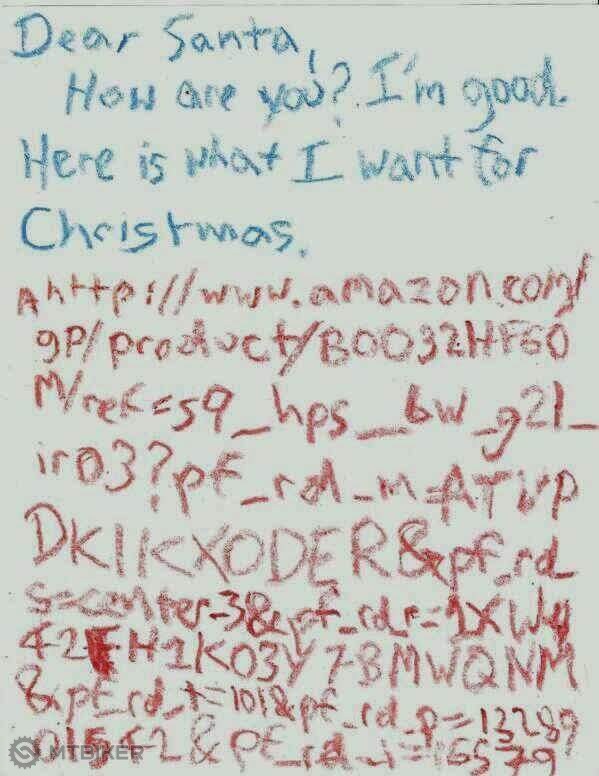 Dear Santa,
How are you? I'm good.
Here is what I want for
Christmas.
A http://www.amazon.com/
gp/product/B0032HF60
M/ref=s9_hps_bw_g21_
ir03?pf_rd_m=ATVP
DKIKX0DER&pf_rd_
s=center-3&pf_rd_r=1XW4
42FH1K03Y7BMWQNM
&pf_rd_t=101&pf_rd_p=13289
01542&pf_rd_i=16579
MTBIKER